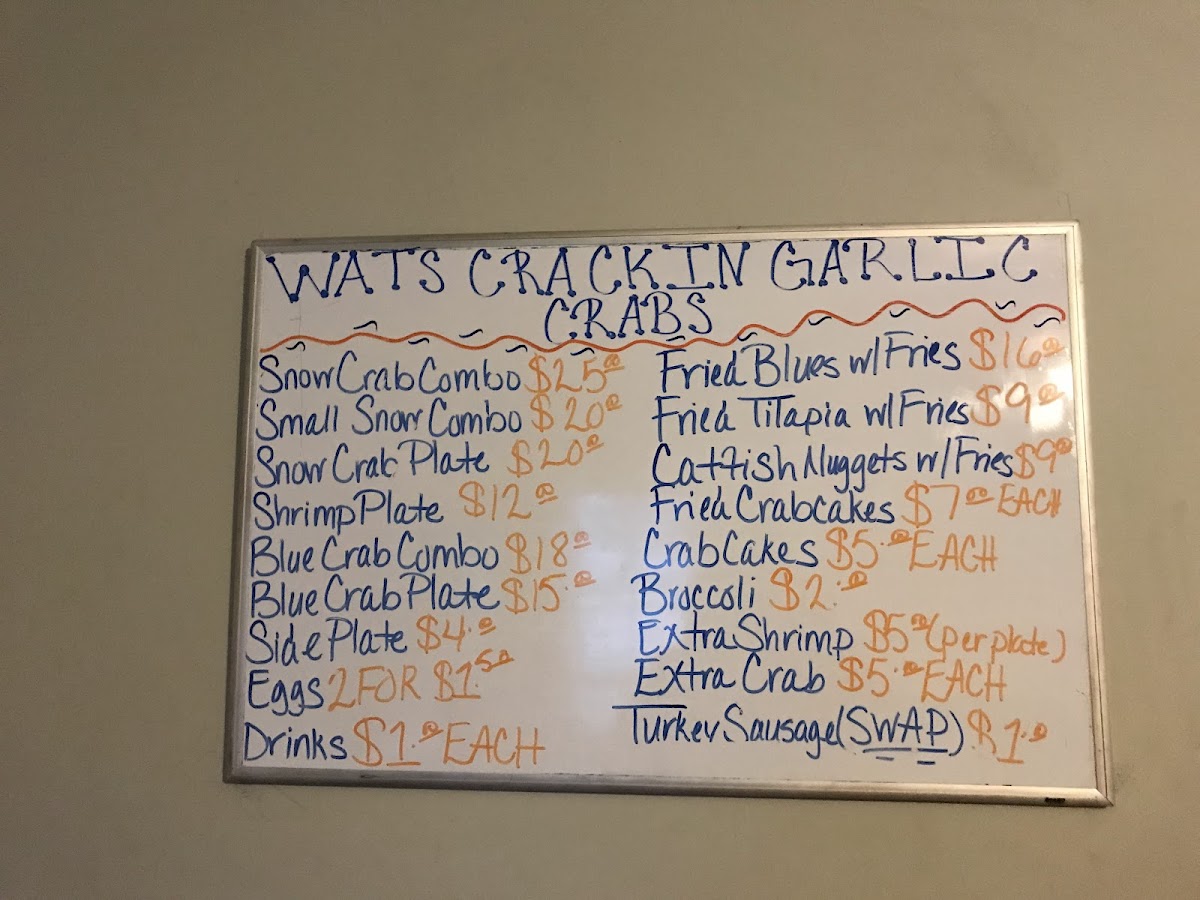 WATS CRACKIN GARLIC
CRABS
Snow Crab Combo $25.00
Small Snow Combo $20.00
Snow Crab Plate $20.00
Shrimp Plate $12.00
Blue Crab Combo $18.00
Blue Crab Plate $15.00
Side Plate $4.00
Eggs 2 FOR $1.50
Drinks $1.00 EACH
Fried Blues w/ Fries $16.00
Fried Tilapia w/ Fries $9.00
Catfish Nuggets w/ Fries $9.00
Fried Crabcakes $7.00 EACH
Crab Cakes $5.00 EACH
Broccoli $2.00
Extra Shrimp $5.00 (per plate)
Extra Crab $5.00 EACH
Turkey Sausage (SWAP) $1.00